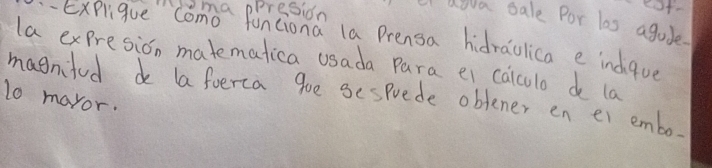 misma presión el agua sale por los aguje-
-Explique como funciona la Prensa hidráulica e indique
la expresión matematica usada para el cálculo de la
magnitud de la fuerza que se puede obtener en el embo-
lo mayor.